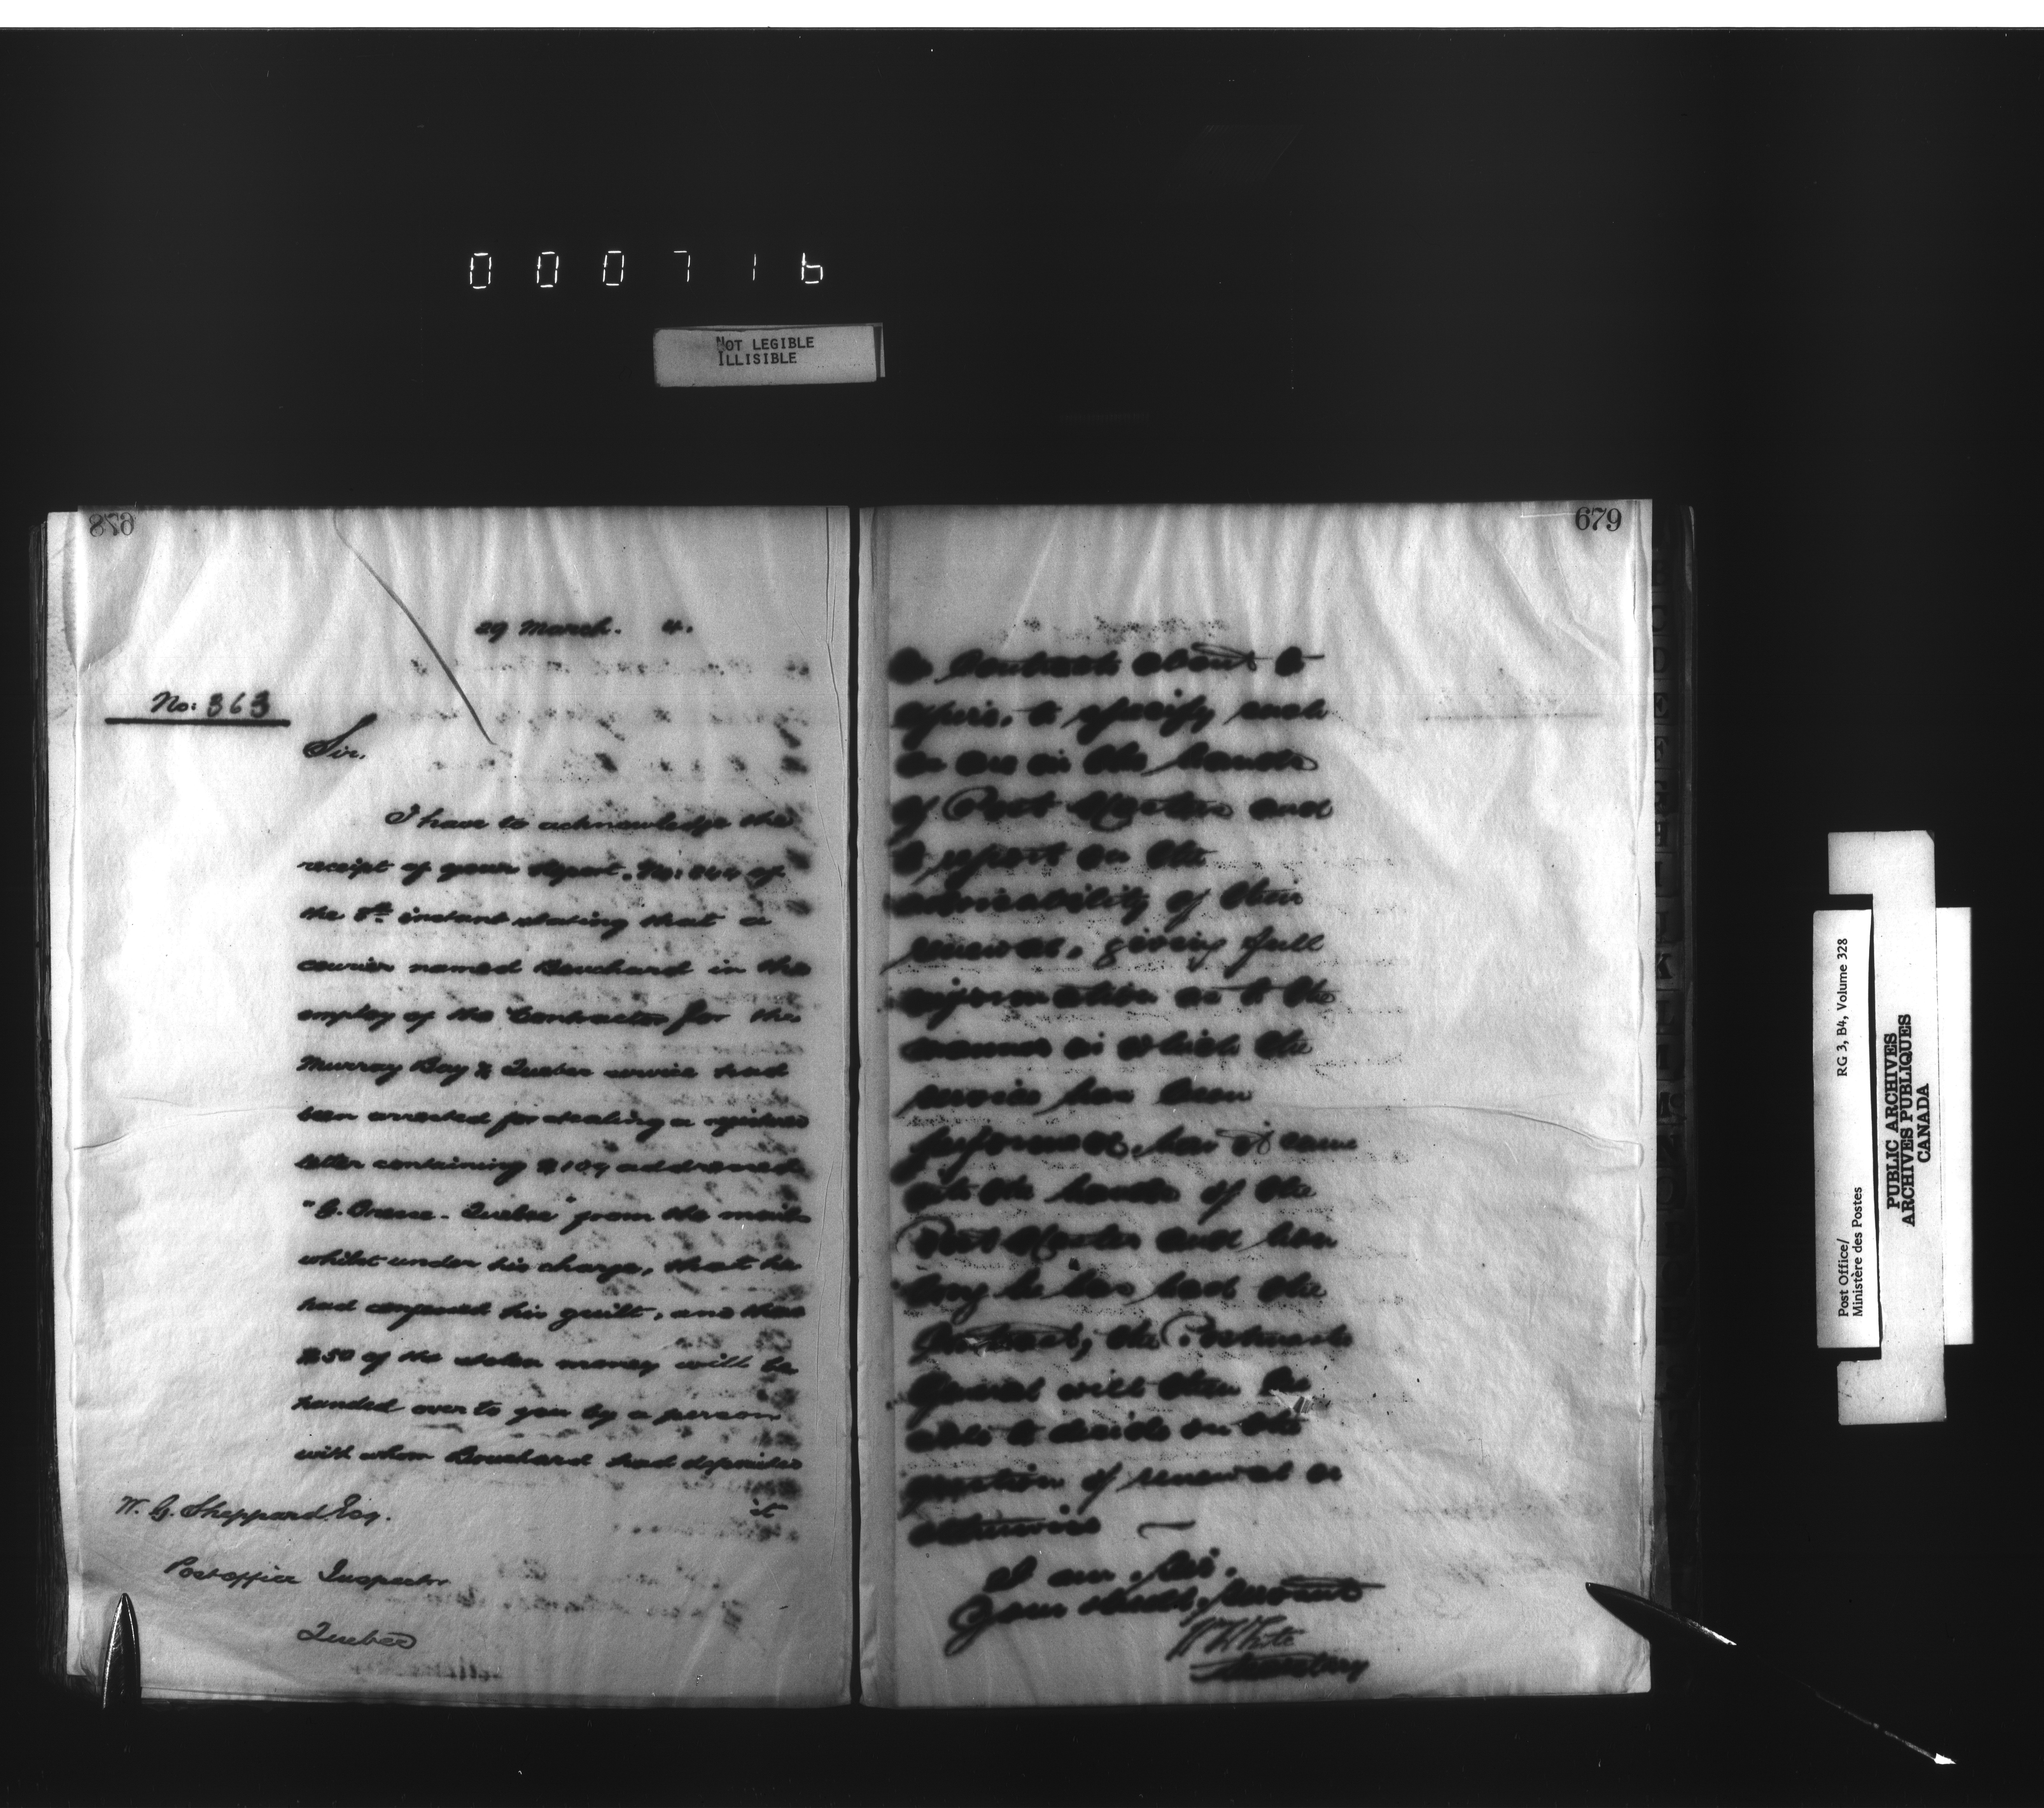 000716
NOT LEGIBLE
ILLISIBLE
678
29 March. 4.
No: 363
Sir,
I have to acknowledge the
receipt of your Report, No: of
the 8th instant stating that a
courier named Bouchard in the
employ of the Contractor for the
Murray Bay & Quebec service had
been arrested for stealing a registered
letter containing addressed
Quebec" from the mails
whilst under his charge, that he
had confessed his guilt, and that
$50 of the stolen money will be
handed over to you by a person
with whom Bouchard had deposited
it
W. G. Sheppard Esq.
Post office Inspector
Quebec
679
Contracts about to
expire, to specify such
as are in the hands
of Post Masters and
to report on the
advisability of their
renewal, giving full
information as to the
manner in which the
service has been
performed, how it came
into the hands of the
Post Master and how
long he has had the
Contract, the Postmaster
General will then be
able to decide on the
question of renewal or
otherwise
I am, Sir,
Your obedt. Servant
W White
Secretary
Post Office/
Ministère des Postes
RG 3, B4, Volume 328
PUBLIC ARCHIVES
ARCHIVES PUBLIQUES
CANADA